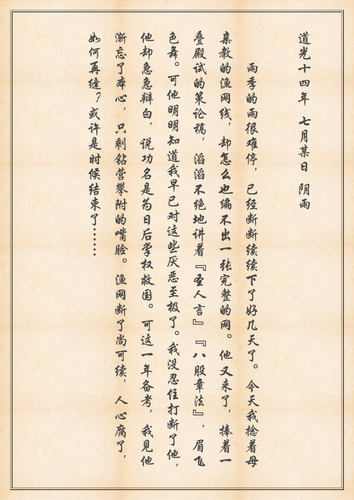 道光十四年 七月某日 阴雨
雨季的雨很难停，已经断断续续下了好几天了。今天我捻着母
亲教的渔网线，却怎么也编不出一张完整的网。他又来了，捧着一
叠殿试的策论稿，滔滔不绝地讲着『圣人言』『八股章法』，眉飞
色舞。可他明明知道我早已对这些厌恶至极了。我没忍住打断了他，
他却急急辩白，说功名是为日后掌权救国。可这一年备考，我见他
渐忘了本心，只剩钻营攀附的嘴脸。渔网断了尚可续，人心腐了，
如何再缝？或许是时候结束了……